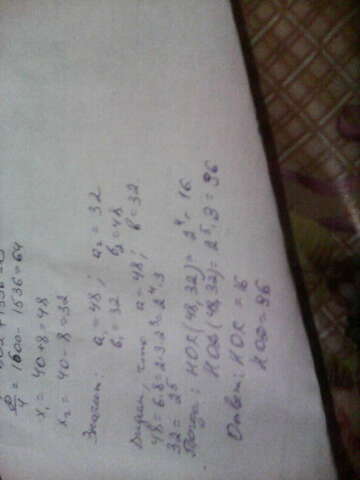 D/4 = 1600 - 1536 = 64
x₁ = 40+8 = 48
x₂ = 40-8 = 32
Значит: a₁ = 48; a₂ = 32
b₁ = 32 b₂ = 48
что a = 48; b = 32.
48 = 6·8 = 2·3·2³ = 2⁴·3
32 = 2⁵
Тогда: НОК(48,32) = 2⁴ = 16
НОД(48,32) = 2⁵·3 = 96
Ответ: НОК = 16
НОД = 96